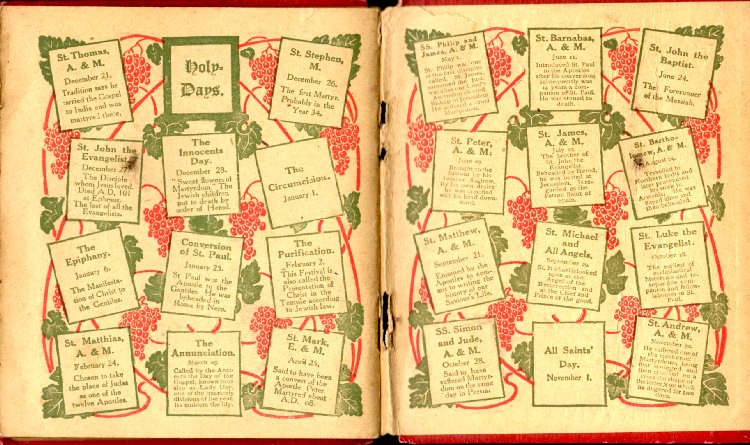 St. Thomas,
A. & M.
December 21.
Tradition says he
carried the Gospel
to India and was
martyred there.
Holy-
Days.
St. Stephen,
M.
December 26.
The first Martyr.
Probably in the
Year 34.
St. John the
Evangelist.
December 27.
The Disciple
whom Jesus loved.
Died A.D. 101
at Ephesus.
The last of all the
Evangelists.
The
Innocents
Day.
December 28.
"Sweet flowers of
Martyrdom." The
Jewish children
put to death by
order of Herod.
The
Circumcision.
January 1.
The
Epiphany.
January 6.
The Manifesta-
tion of Christ to
the Gentiles.
Conversion
of St. Paul.
January 25.
St. Paul was the
Apostle to the
Gentiles. He was
beheaded in
Rome by Nero.
The
Purification.
February 2.
This Festival is
also called the
Presentation of
Christ in the
Temple according
to Jewish law.
St. Matthias,
A. & M.
February 24.
Chosen to take
the place of Judas
as one of the
twelve Apostles.
The
Annunciation.
March 25.
Called by the Anci-
ents the Day of the
Gospel, known now
also as Lady Day,
one of the quarterly
divisions of the year,
its emblem the lily.
St. Mark,
E. & M.
April 25.
Said to have been
a convert of the
Apostle Peter.
Martyred about
A.D. 68.
SS. Philip and
James, A. & M.
May 1.
St. Philip was one
of the first disciples.
St. James
surnamed the Just,
Bishop of Jerusalem,
suffered a cruel
Martyrdom.
St. Barnabas,
A. & M.
June 11.
Introduced St. Paul
to the Apostles
after his conversion;
subsequently was
14 years a com-
panion of St. Paul.
He was stoned to
death.
St. John the
Baptist.
June 24.
The Forerunner
of the Messiah.
St. Peter,
A. & M.
June 29.
Brought to the
Saviour by his
brother Andrew.
By his own desire
he was crucified
with his head down-
ward.
St. James,
A. & M.
July 25.
The brother of
St. John the
Evangelist.
Beheaded by Herod.
He was buried at
Jerusalem. Re-
garded as the
Patron Saint of
Spain.
St. Bartho-
lomew, A. & M.
August 24.
Travelled to
Northern India and
later preached
the word in
Armenia. He was
flayed alive and
then beheaded.
St. Matthew,
A. & M.
September 21.
Enjoined by the
Apostles to com-
mit to writing the
history of our
Saviour's Life.
St. Michael
and
All Angels.
September 29.
St. Michael is looked
upon as the
Angel of the
Resurrection and
as the Chief and
Prince of the good.
St. Luke the
Evangelist.
October 18.
The earliest of
ecclesiastical
historians and in-
separable com-
panion and fellow
labourer of St.
Paul.
SS. Simon
and Jude,
A. & M.
October 28.
Said to have
suffered Martyr-
dom on the same
day in Persia.
All Saints'
Day.
November 1.
St. Andrew,
A. & M.
November 30.
He suffered one of
the most cruel
Martyrdoms, being
first scourged and
then crucified on a
cross the shape of
the letter X on which
he lingered for two
days.